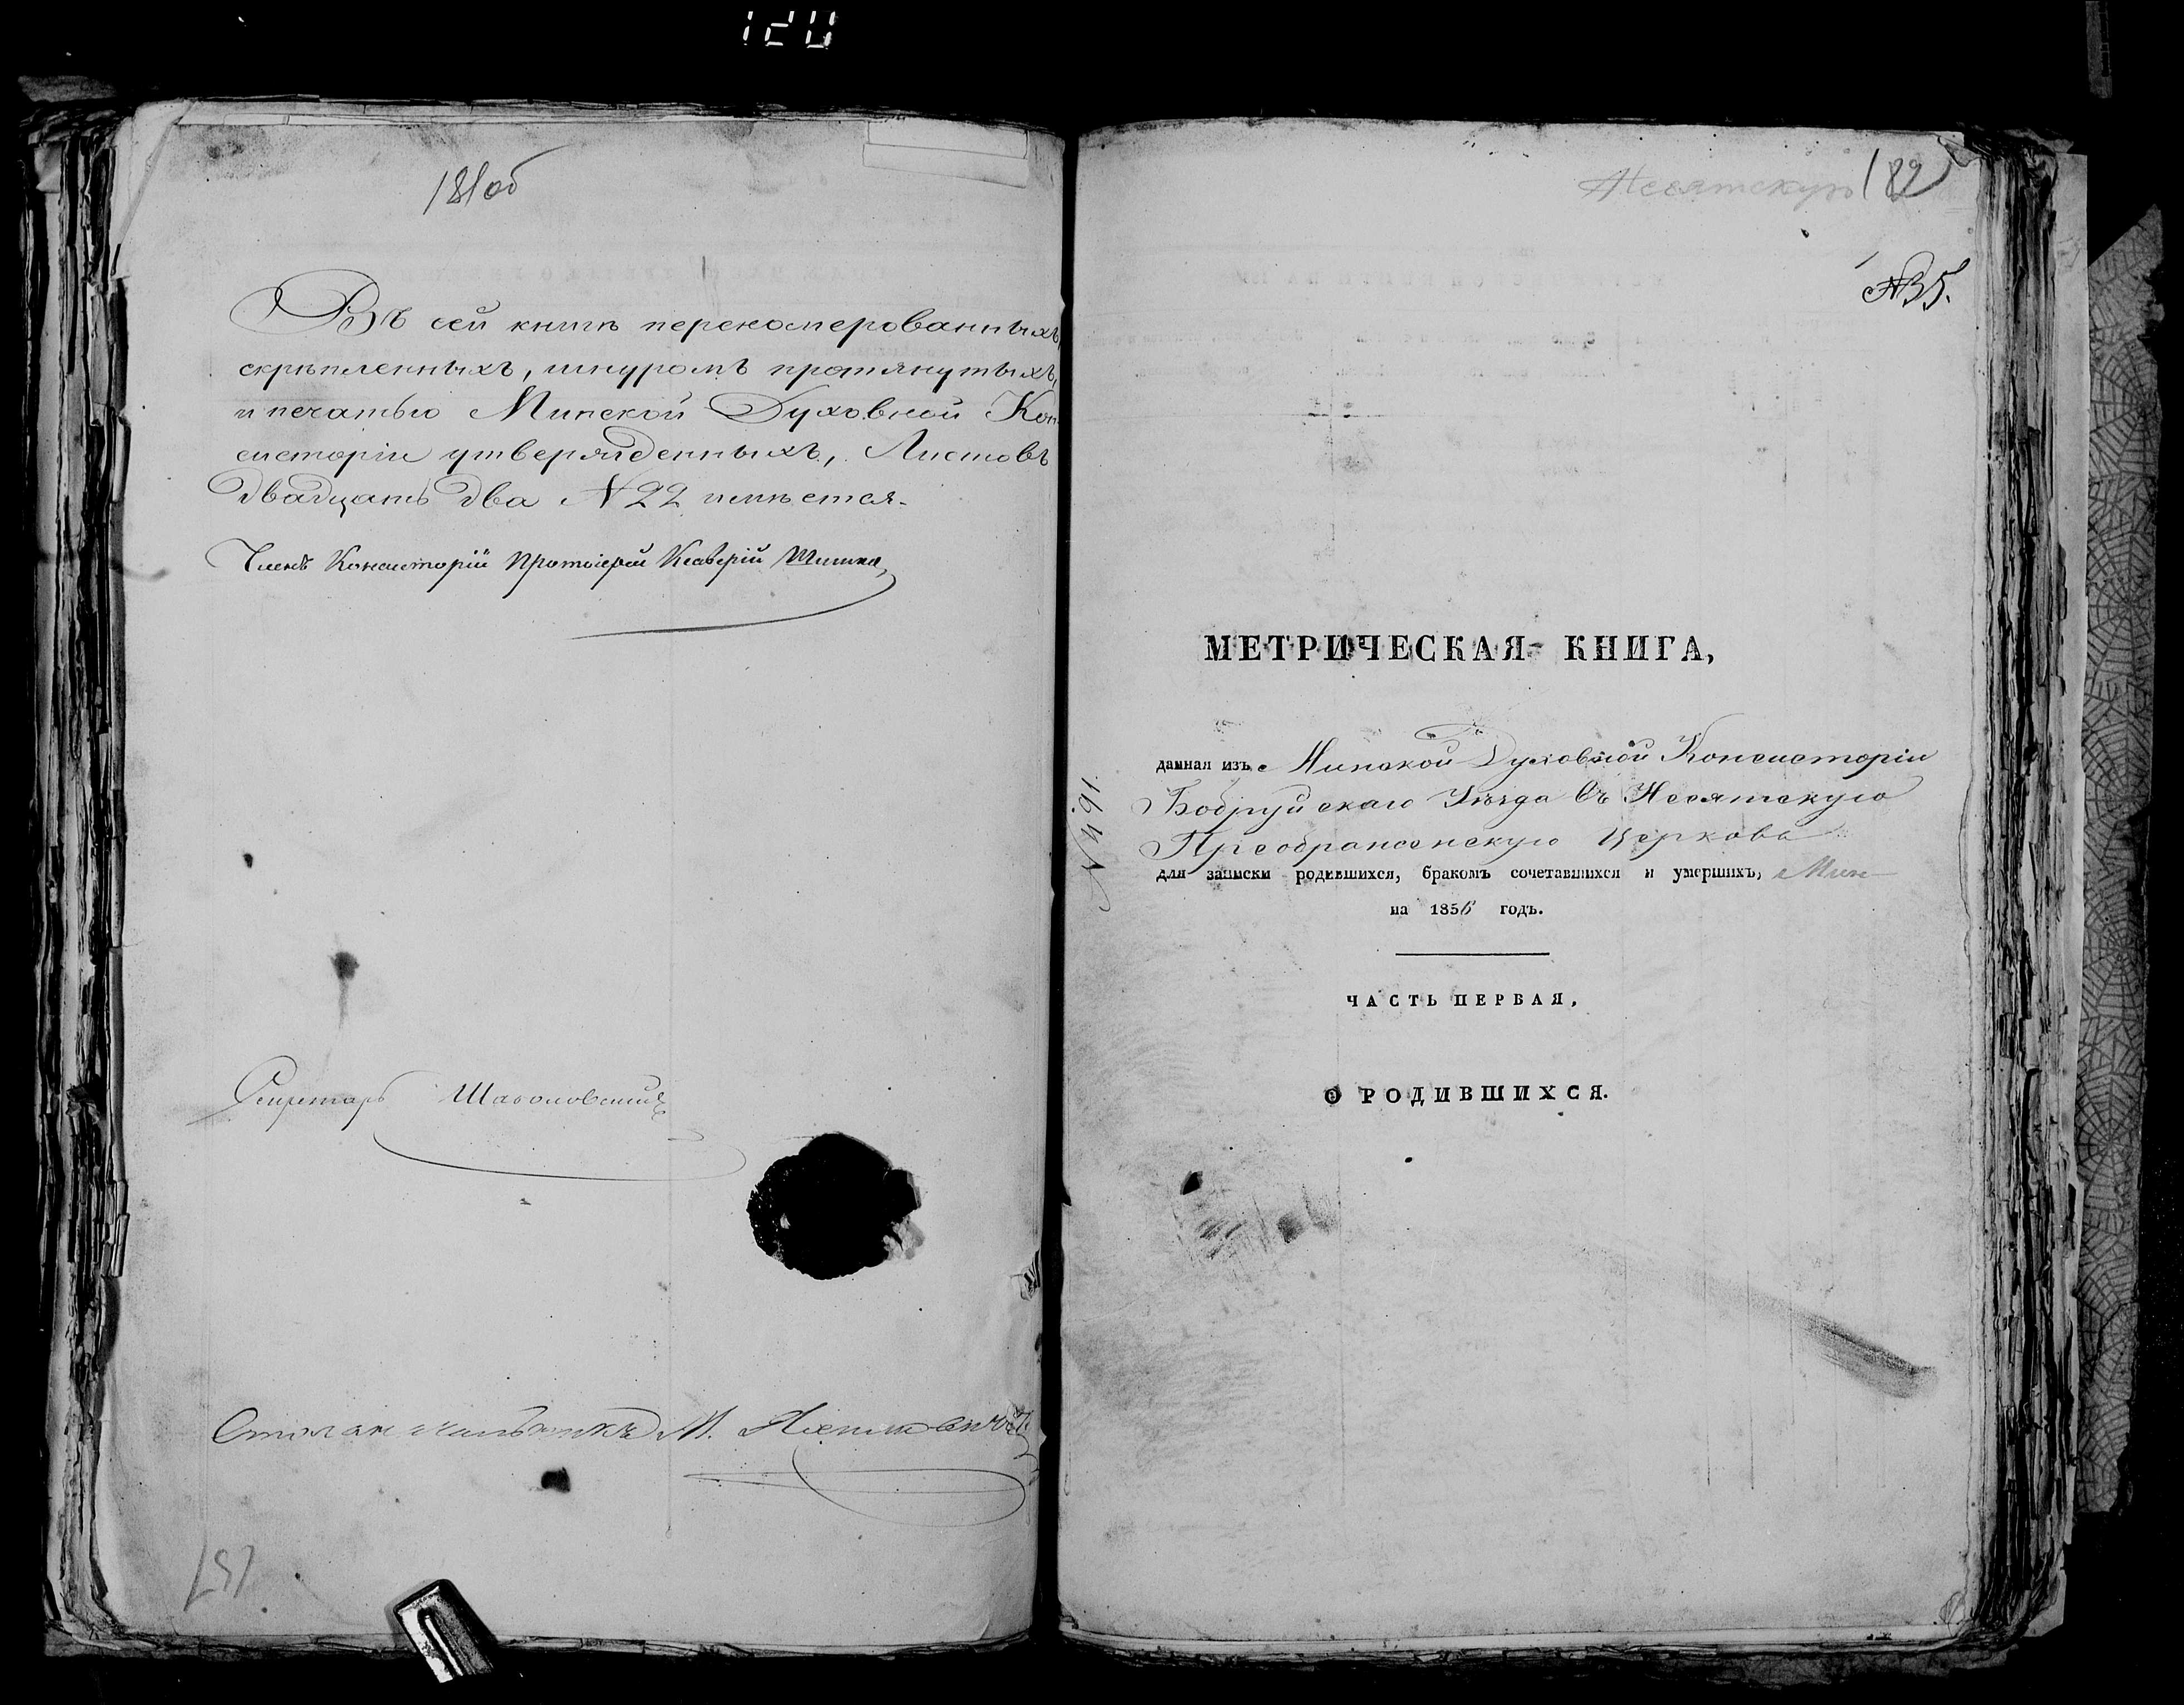 120
181об
Въ сей книгѣ перекомерованныхъ,
скрѣпленныхъ, шнуромъ протянутыхъ,
и печатью Минской Духовной Кон
систоріи утвержденныхъ, Листовъ
двадцать два №22 имѣется.
Членъ Консисторіи Протоіерей Ксаверій
Секретарь
Столоначальникъ М.
157
Несятскую 182
№35.
МЕТРИЧЕСКАЯ КНИГА,
данная изъ Минской Духовной Консисторіи
Бобруйскаго Уѣзда въ Несятскую
Преображенскую церковь
для записки родившихся, бракомъ сочетавшихся и умершихъ,
на 1856 годъ.
№491.
ЧАСТЬ ПЕРВАЯ,
О РОДИВШИХСЯ.